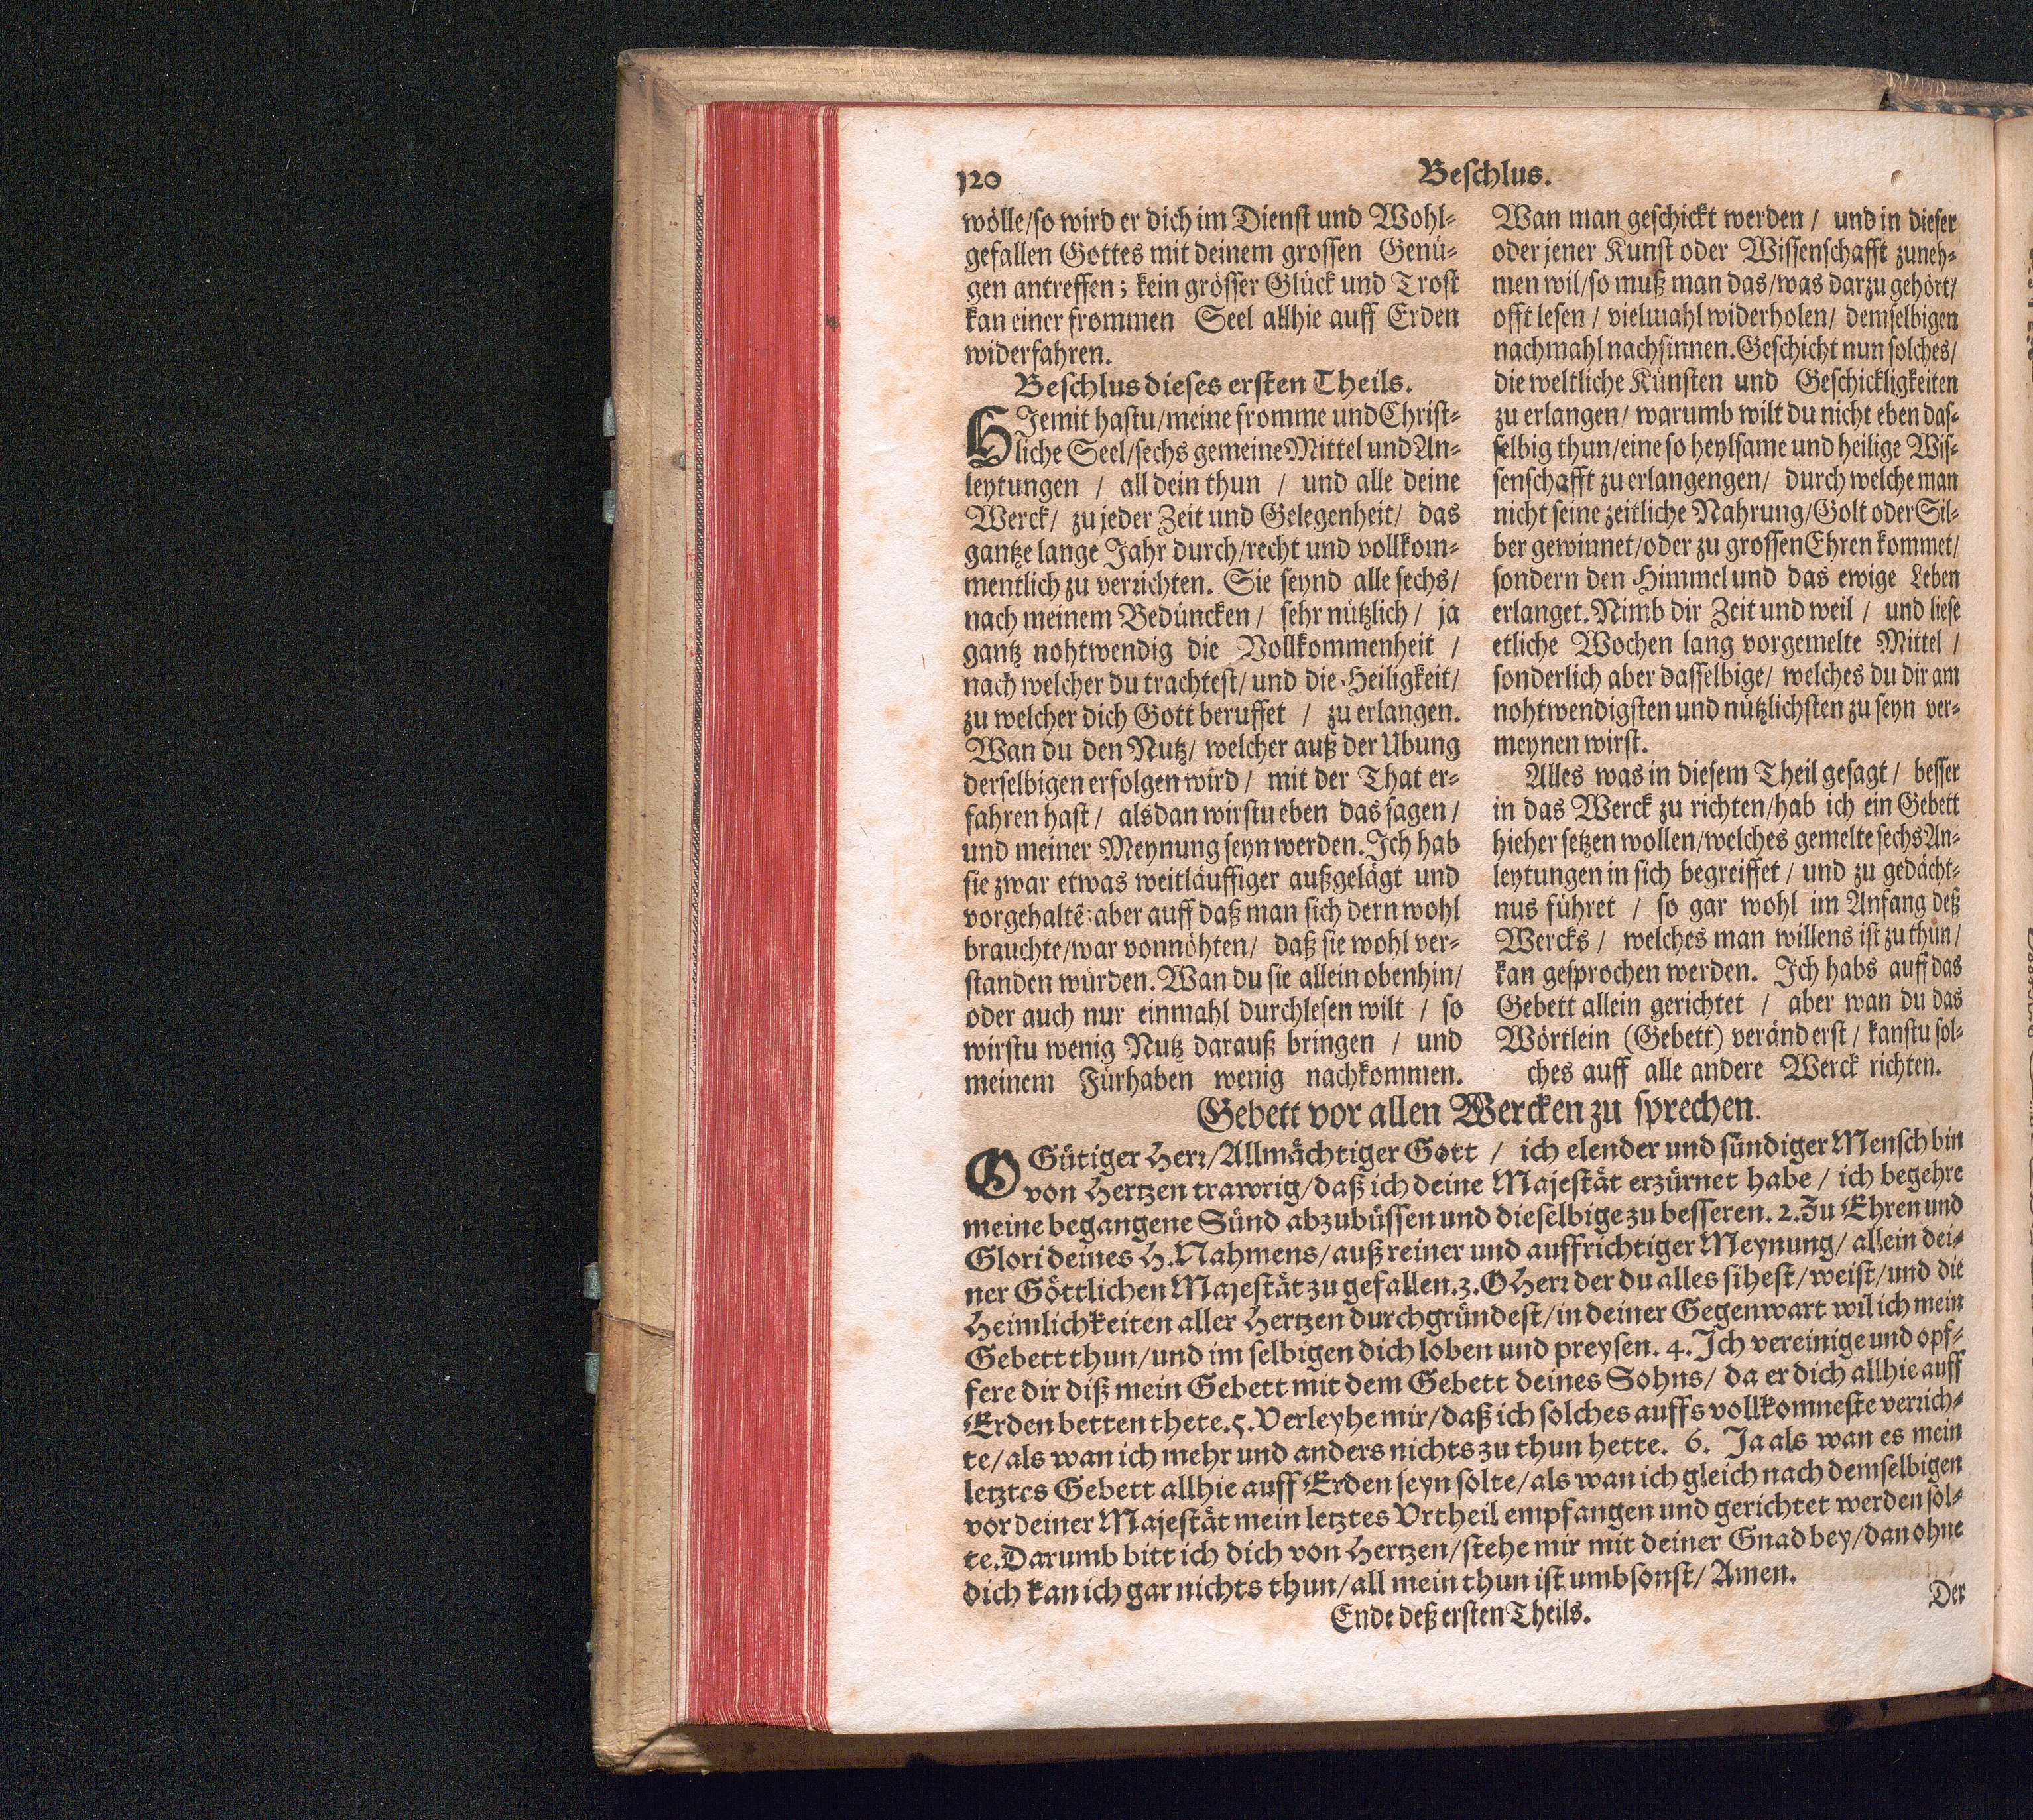 120 Beschlus.
wölle/so wird er dich im Dienst und Wohl-
gefallen Gottes mit deinem grossen Genü-
gen antreffen; kein grösser Glück und Trost
kan einer frommen Seel allhie auff Erden
widerfahren.
Beschlus dieses ersten Theils.
HJemit hastu/meine fromme und Christ-
liche Seel/sechs gemeine Mittel und An-
leytungen / all dein thun / und alle deine
Werck/ zu jeder Zeit und Gelegenheit/ das
gantze lange Jahr durch/recht und vollkom-
mentlich zu verrichten. Sie seynd alle sechs/
nach meinem Bedüncken/ sehr nützlich/ ja
gantz nohtwendig die Vollkommenheit /
nach welcher du trachtest/und die Heiligkeit/
zu welcher dich Gott beruffet / zu erlangen.
Wan du den Nutz/ welcher auß der Ubung
derselbigen erfolgen wird/ mit der That er-
fahren hast/ alsdan wirstu eben das sagen/
und meiner Meynung seyn werden. Ich hab
sie zwar etwas weitläuffiger außgelägt und
vorgehaltẽ: aber auff daß man sich dern wohl
brauchte/war vonnöhten/ daß sie wohl ver-
standen würden. Wan du sie allein obenhin/
oder auch nur einmahl durchlesen wilt / so
wirstu wenig Nutz darauß bringen / und
meinem Fürhaben wenig nachkommen.
Wan man geschickt werden/ und in dieser
oder jener Kunst oder Wissenschafft zuneh-
men wil/so muß man das/was darzu gehört/
offt lesen/ vielmahl widerholen/ demselbigen
nachmahl nachsinnen. Geschicht nun solches/
die weltliche Künsten und Geschickligkeiten
zu erlangen/ warumb wilt du nicht eben das-
selbig thun/eine so heylsame und heilige Wis-
senschafft zu erlangengen/ durch welche man
nicht seine zeitliche Nahrung/Golt oder Sil-
ber gewinnet/oder zu grossen Ehren kommet/
sondern den Himmel und das ewige Leben
erlanget. Nimb dir Zeit und weil/ und liese
etliche Wochen lang vorgemelte Mittel /
sonderlich aber dasselbige/ welches du dir am
nohtwendigsten und nützlichsten zu seyn ver-
meynen wirst.
Alles was in diesem Theil gesagt/ besser
in das Werck zu richten/hab ich ein Gebett
hieher setzen wollen/welches gemelte sechs An-
leytungen in sich begreiffet/ und zu gedächt-
nus führet / so gar wohl im Anfang deß
Wercks/ welches man willens ist zu thun/
kan gesprochen werden. Ich habs auff das
Gebett allein gerichtet / aber wan du das
Wörtlein (Gebett) veränderst/ kanstu sol-
ches auff alle andere Werck richten.
Gebett vor allen Wercken zu sprechen.
O Gütiger Herr/Allmächtiger Gott / ich elender und sündiger Mensch bin
von Hertzen trawrig/daß ich deine Majestät erzürnet habe/ ich begehre
meine begangene Sünd abzubüssen und dieselbige zu besseren. 2. Zu Ehren und
Glori deines H. Nahmens/auß reiner und auffrichtiger Meynung/ allein dei-
ner Göttlichen Majestät zu gefallen. 3. O Herr der du alles sihest/weist/und die
Heimlichkeiten aller Hertzen durchgründest/in deiner Gegenwart wil ich mein
Gebett thun/und im selbigen dich loben und preysen. 4. Ich vereinige und opf-
fere dir diß mein Gebett mit dem Gebett deines Sohns/ da er dich allhie auff
Erden betten thete. 5. Verleyhe mir/daß ich solches auffs vollkomneste verrich-
te/als wan ich mehr und anders nichts zu thun hette. 6. Ja als wan es mein
letztes Gebett allhie auff Erden seyn solte/als wan ich gleich nach demselbigen
vor deiner Majestät mein letztes Vrtheil empfangen und gerichtet werden sol-
te. Darumb bitt ich dich von Hertzen/stehe mir mit deiner Gnad bey/dan ohne
dich kan ich gar nichts thun/all mein thun ist umbsonst/ Amen.
Ende deß ersten Theils.
Der